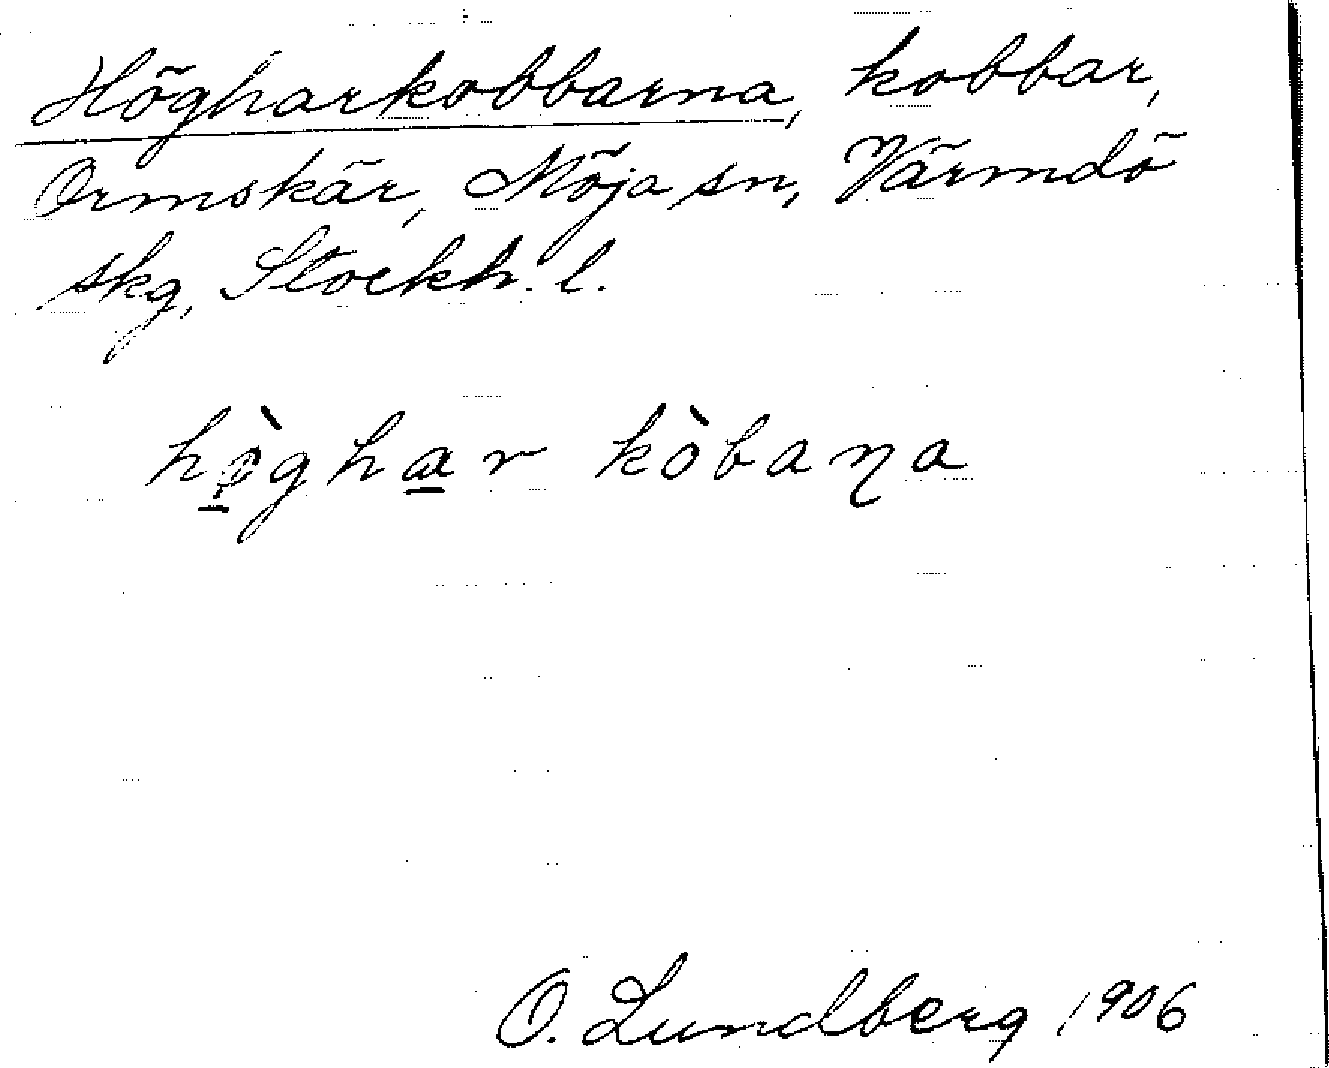 Högharkobbarna, kobbar,
Ormskär, Möja sn, Värmdö
skg, Stockh. l.
hø̱̀gha̱r kòbaɳa
O. Lundberg 1906